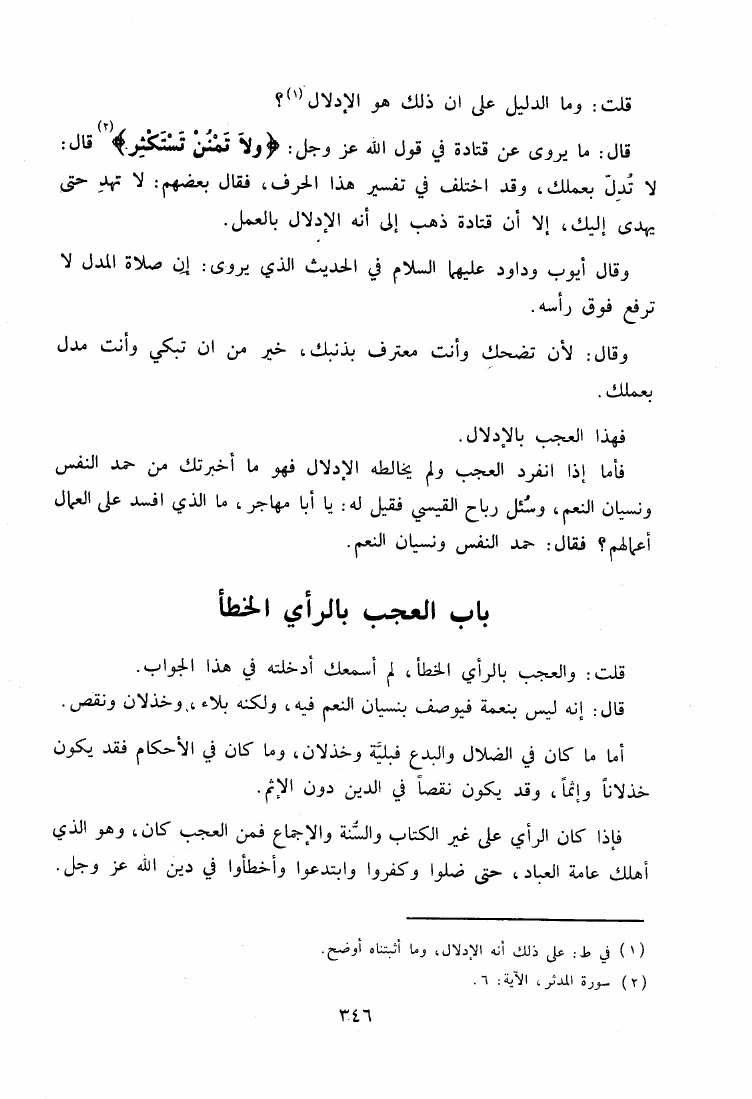 قلت: وما الدليل على ان ذلك هو الإدلال(١)؟
قال: ما يروى عن قتادة في قول الله عز وجل: ﴿ولاَ تَمْنُنْ تَسْتَكْثِر﴾(٢) قال:
لا تُدِلّ بعملك، وقد اختلف في تفسير هذا الحرف، فقال بعضهم: لا تهدِ حتى
يهدى إليك، إلا أن قتادة ذهب إلى أنه الإدلال بالعمل.
وقال أيوب وداود عليهما السلام في الحديث الذي يروى: إن صلاة المدل لا
ترفع فوق رأسه.
وقال: لأن تضحك وأنت معترف بذنبك، خير من ان تبكي وأنت مدل
بعملك.
فهذا العجب بالإدلال.
فأما إذا انفرد العجب ولم يخالطه الإدلال فهو ما أخبرتك من حمد النفس
ونسيان النعم، وسُئل رباح القيسي فقيل له: يا أبا مهاجر، ما الذي افسد على العمال
أعمالهم؟ فقال: حمد النفس ونسيان النعم.
باب العجب بالرأي الخطأ
قلت: والعجب بالرأي الخطأ، لم أسمعك أدخلته في هذا الجواب.
قال: إنه ليس بنعمة فيوصف بنسيان النعم فيه، ولكنه بلاء، وخذلان ونقص.
أما ما كان في الضلال والبدع فبليَّة وخذلان، وما كان في الأحكام فقد يكون
خذلاناً وإثماً، وقد يكون نقصاً في الدين دون الإثم.
فإذا كان الرأي على غير الكتاب والسُّنة والإجماع فمن العجب كان، وهو الذي
أهلك عامة العباد، حتى ضلوا وكفروا وابتدعوا وأخطأوا في دين الله عز وجل.
(١) في ط: على ذلك أنه الإدلال، وما أثبتناه أوضح.
(٢) سورة المدثر، الآية: ٦.
٣٤٦